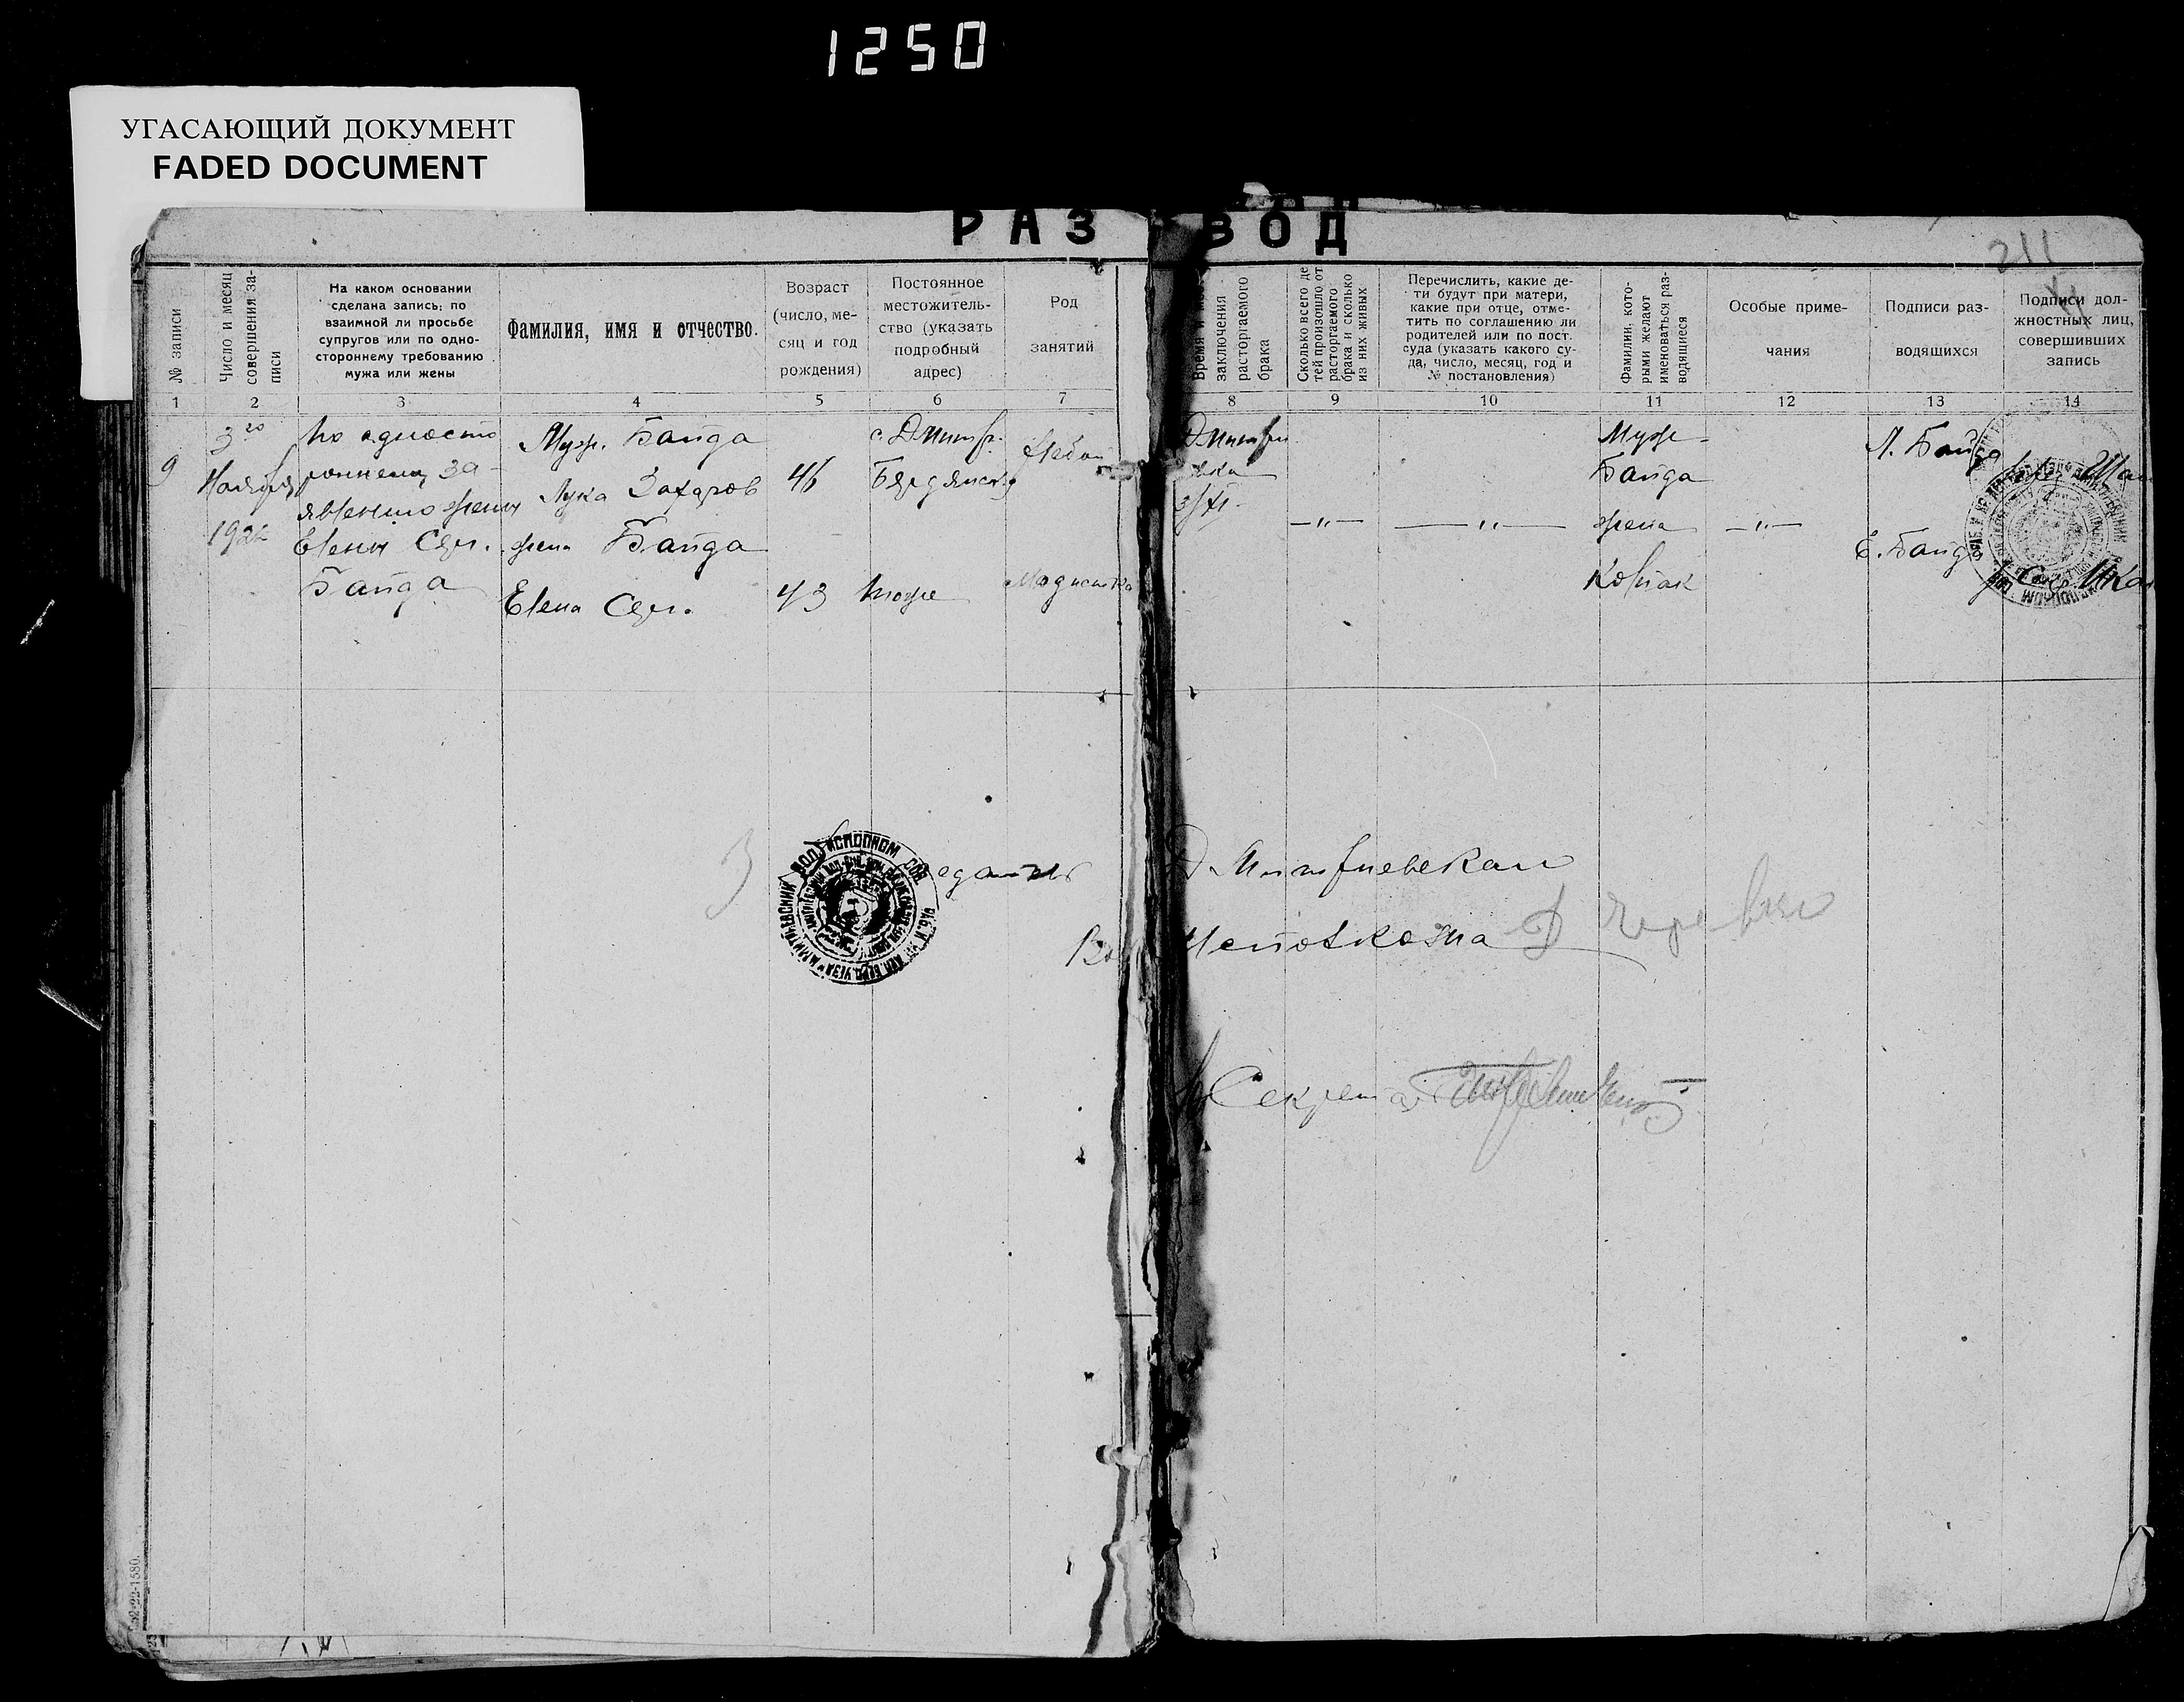 1250
УГАСАЮЩИЙ ДОКУМЕНТ
FADED DOCUMENT
РАЗВОД
211
№ записи
Число и месяц
совершения за-
писи
На каком основании
сделана запись: по
взаимной ли просьбе
супругов или по одно-
стороннему требованию
мужа или жены
Фамилия, имя и отчество.
Возраст
(число, ме-
сяц и год
рождения)
Постоянное
местожитель-
ство (указать
подробный
адрес)
Род
занятий
Время и
заключения
расторгаемого
брака
Сколько всего де
тей произошло от
расторгаемого
брака и сколько
из них живых
Перечислить, какие де-
ти будут при матери,
какие при отце, отме-
тить по соглашению ли
родителей или по пост.
суда (указать какого су-
да, число, месяц, год и
№ постановления)
Фамилии, кото-
рыми желают
именоваться раз-
водящиеся
Особые приме-
чания
Подписи раз-
водящихся
Подписи дол-
жностных лиц,
совершивших
запись
1 2 3 4 5 6 7 8 9 10 11 12 13 14
9
3го
Ноября
1922
По одностo
роннему за-
явлению жены
Елены Сер.
Байда
Муж. Байда
Лука Захаров
жена Байда
Елена Сер.
46
43
с. Дмитр.
Бердянск.у
тоже
Модистка
Дмитри
вка
3/XI-
—"—
—"—
Муж-
Байда
жена
Копак
—"—
Л. Байда
Е. Байда
Дмитриевскаго
Исполкома
Секретарь
62-22-1580.